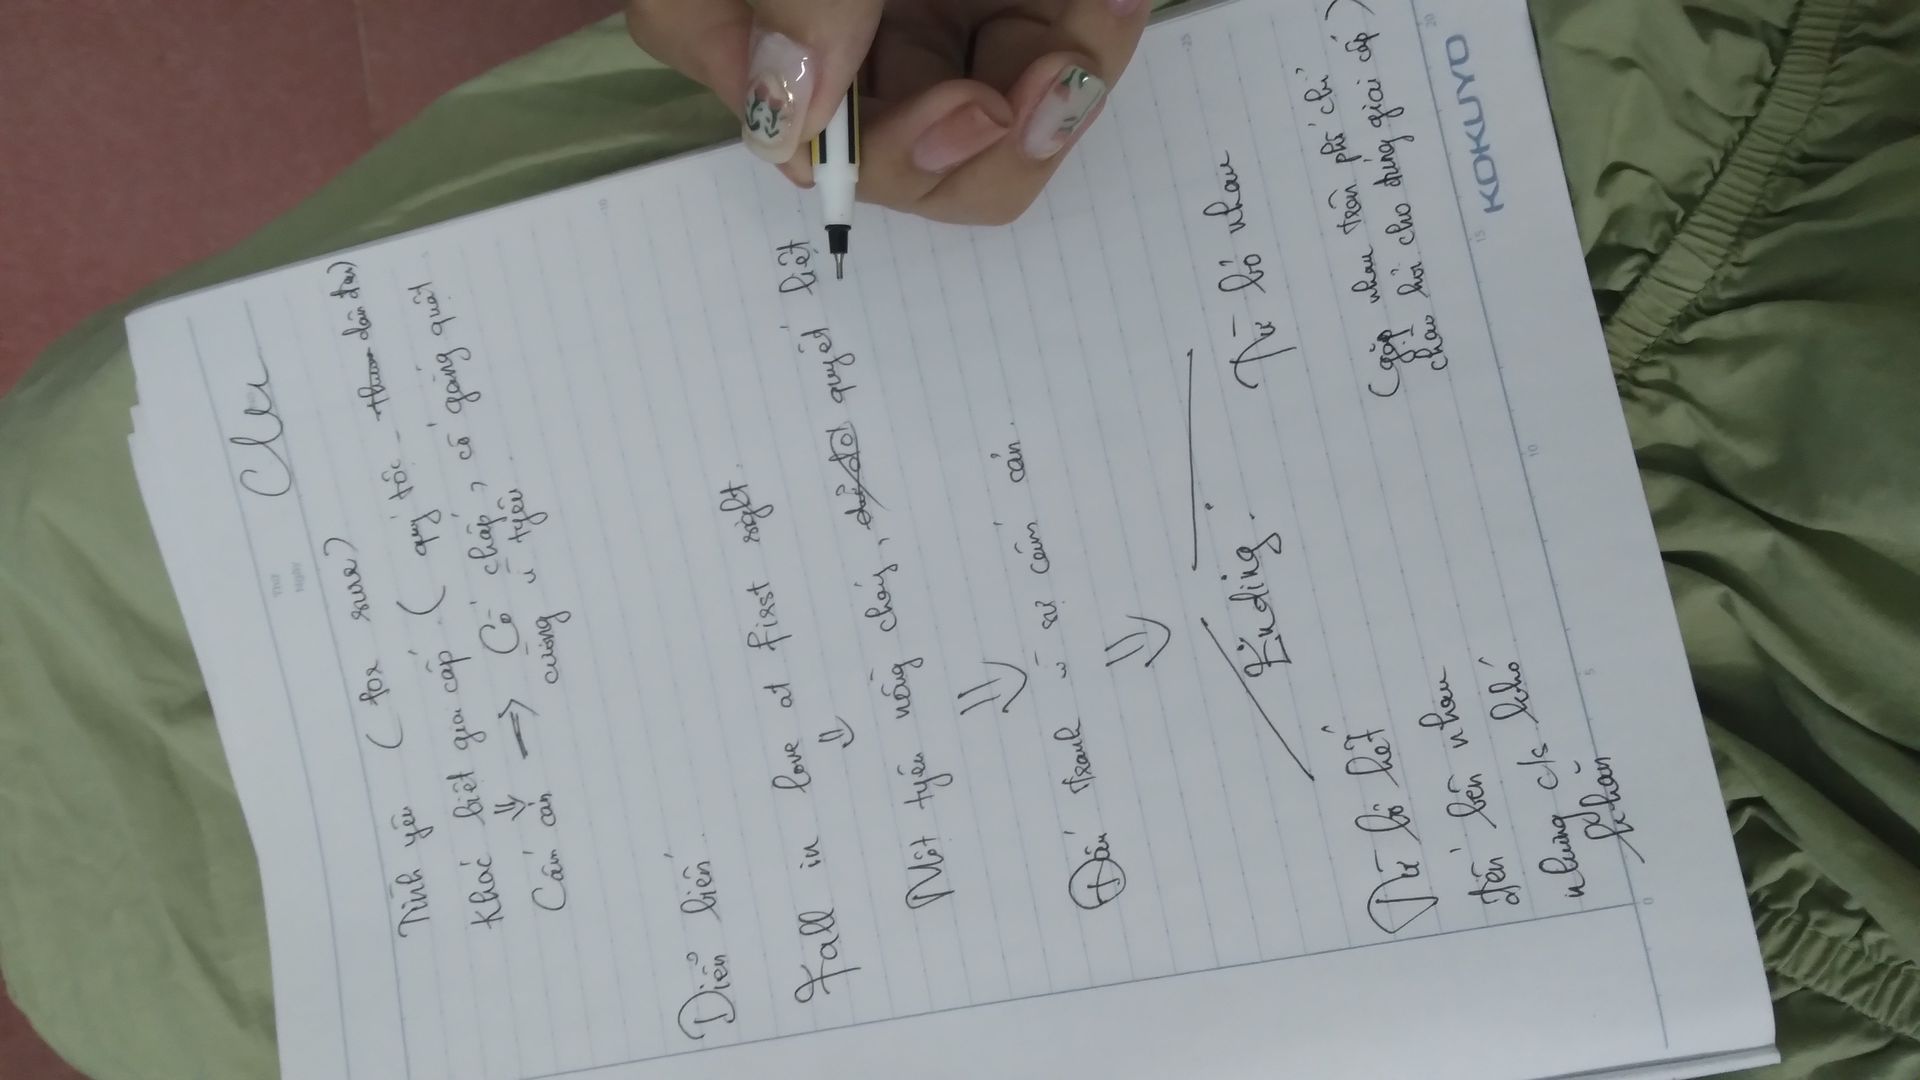 Clu
Thứ
Ngày
Tình yêu (for sure)
Khác biệt giai cấp (quý tộc - dân đen)
Cấm cản ⇒ Cố chấp, cố gắng quật cường vì tyêu
Diễn biến.
Fall in love at first sight.
⇓
Một tyêu nồng cháy, quyết liệt
⇓
Đấu tranh vì sự cấm cản.
⇓
Ending.
Từ bỏ hết
đến bên nhau
nhưng c/s khó
khăn
Từ bỏ nhau
(gặp nhau trên phố chỉ
chào hỏi cho đúng giai cấp)
KOKUYO
0 5 10 15 20
25